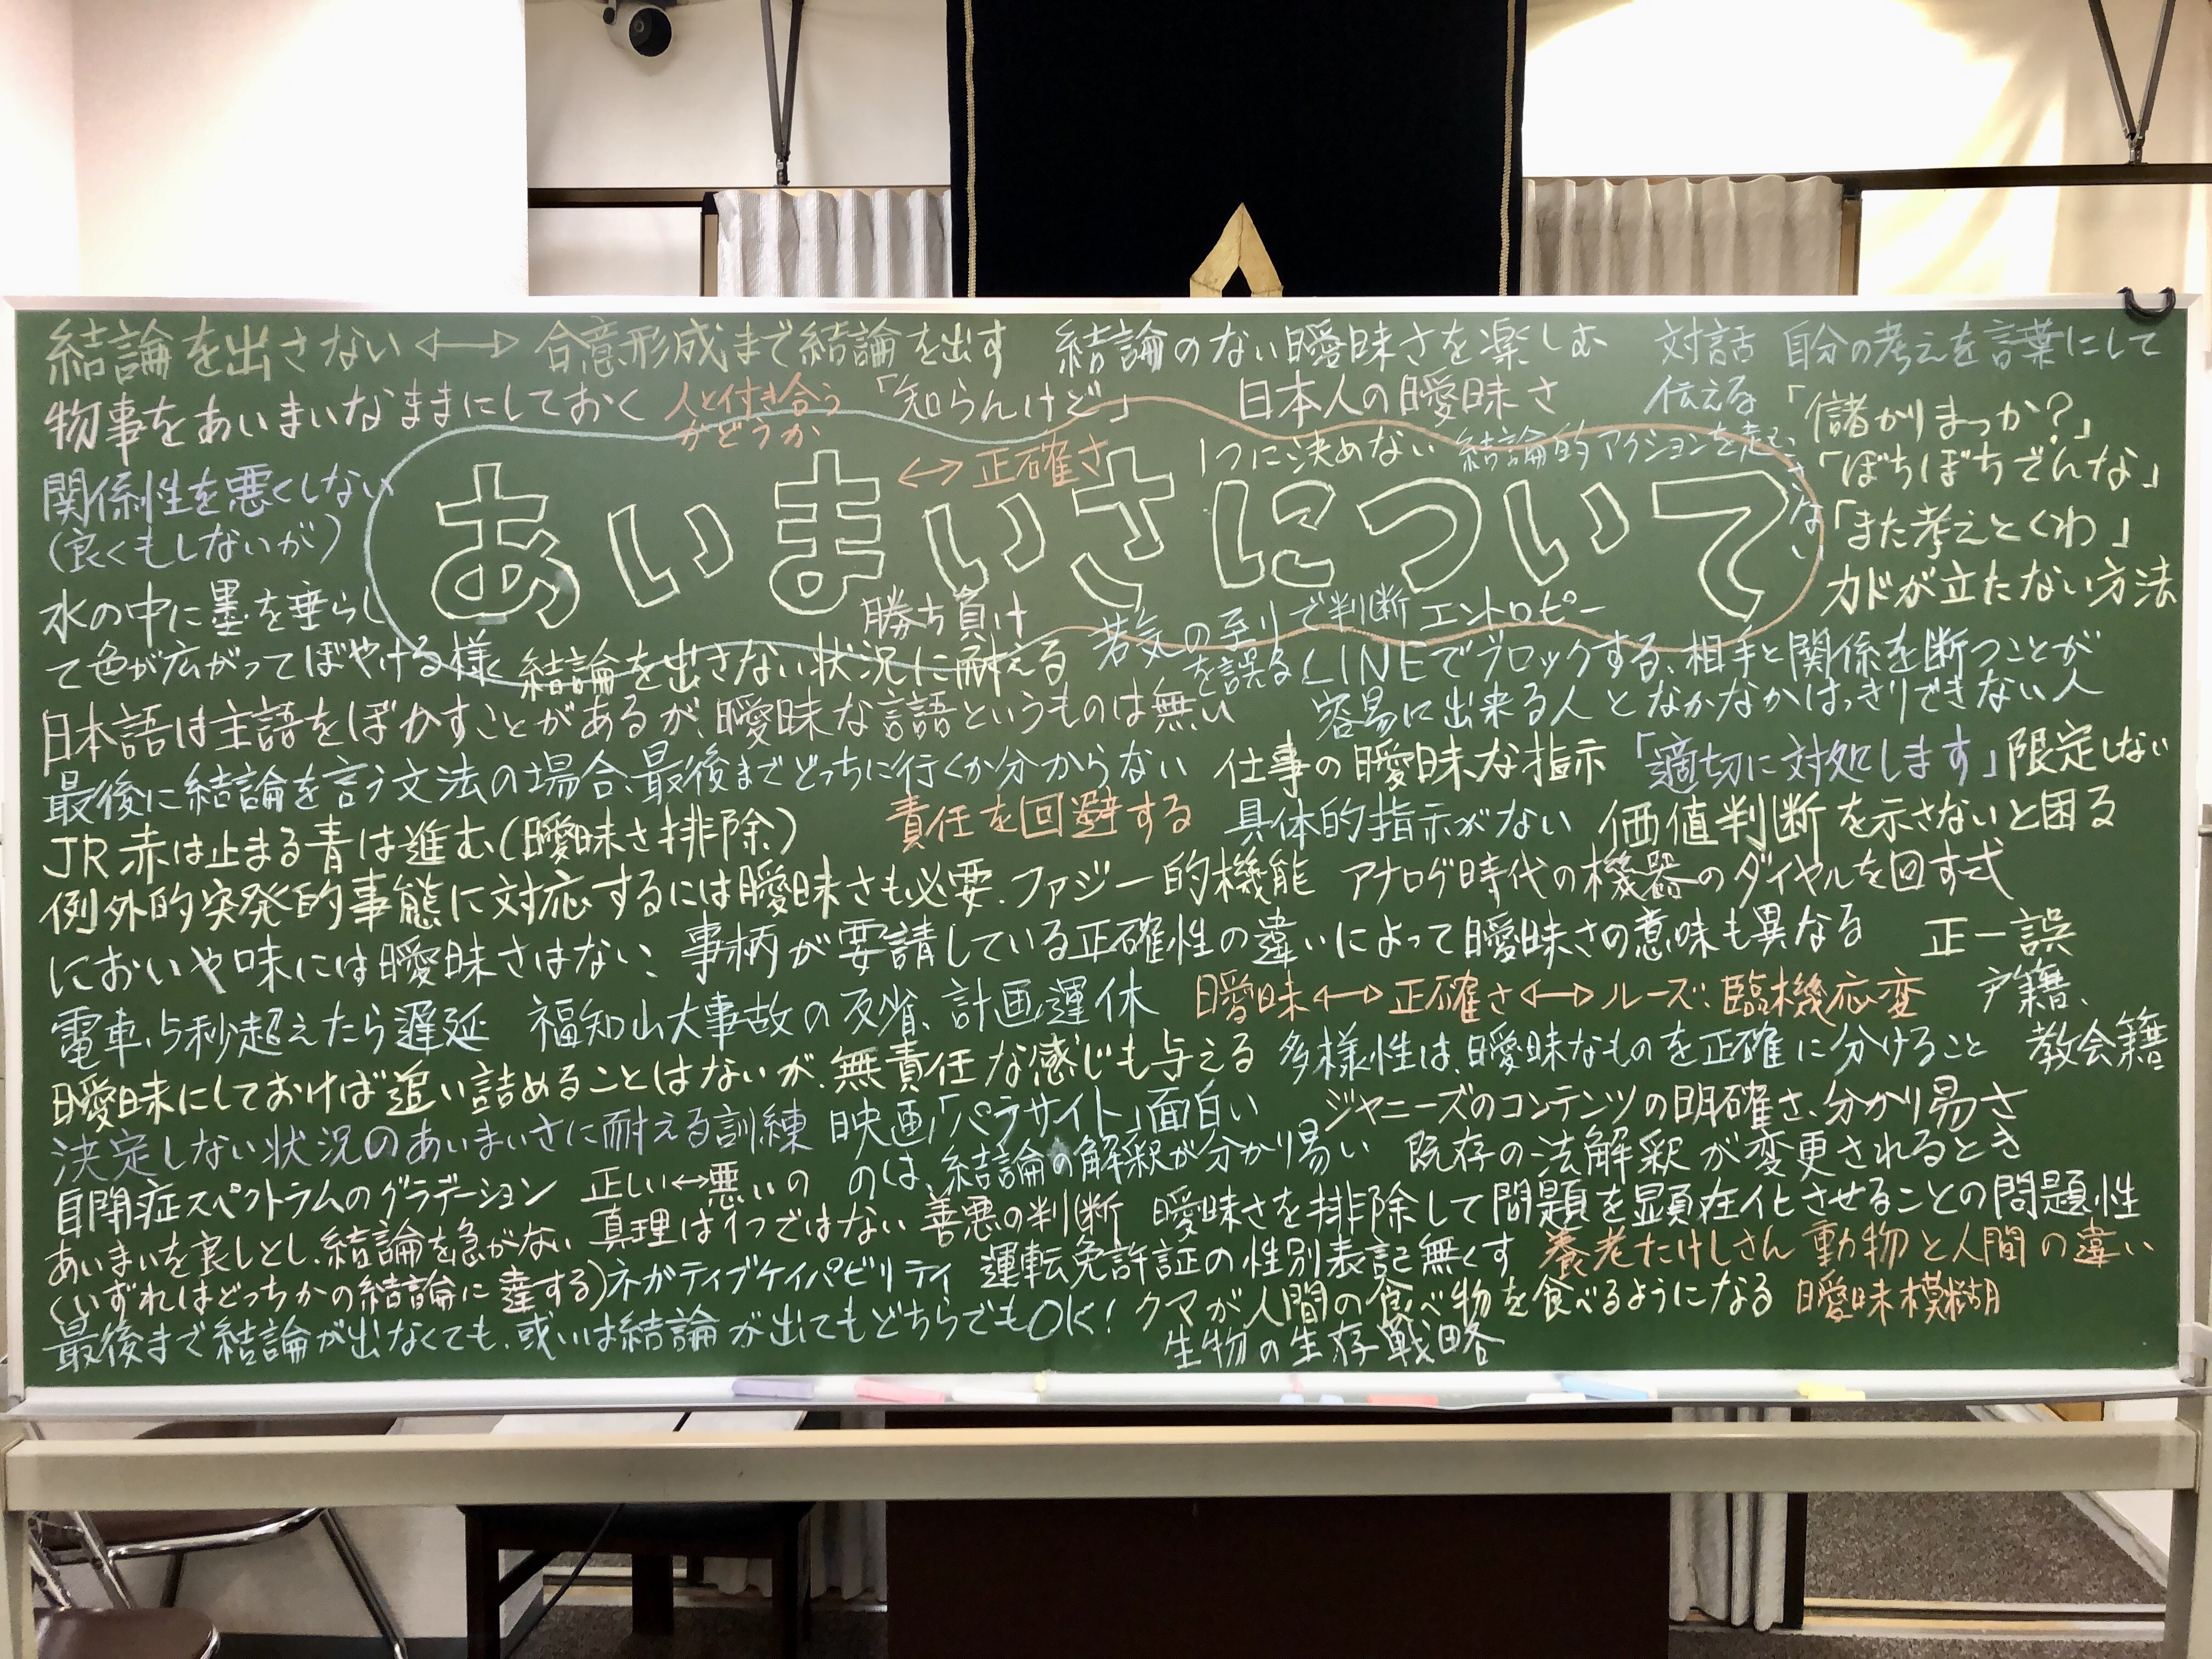 結論を出さない ⟷ 合意形成まで結論を出す 結論のない曖昧さを楽しむ 対話 自分の考えを言葉にして
伝える
物事をあいまいなままにしておく 人と付き合う
かどうか
「知らんけど」 日本人の曖昧さ 「儲かりまっか？」
「ぼちぼちでんな」
「また考えとくわ」
カドが立たない方法
関係性を悪くしない
（良くもしないが）
⟷ 正確さ 1つに決めない 結論的アクションを起こさない
あいまいさについて
水の中に墨を垂らし
て色が広がってぼやける様
勝ち負け
結論を出さない状況に耐える
若気の至りで判断
を誤る
エントロピー
LINEでブロックする、相手と関係を断つことが
容易に出来る人となかなかはっきりできない人
日本語は主語をぼかすことがあるが、曖昧な言語というものは無い
最後に結論を言う文法の場合、最後までどっちに行くか分からない
仕事の曖昧な指示 「適切に対処します」限定しない
JR 赤は止まる青は進む（曖昧さ排除） 責任を回避する 具体的指示がない 価値判断を示さないと困る
例外的突発的事態に対応するには曖昧さも必要．ファジー的機能 アナログ時代の機器のダイヤルを回す式
においや味には曖昧さはない、事柄が要請している正確性の違いによって曖昧さの意味も異なる 正ー誤
電車、5秒超えたら遅延 福知山大事故の反省、計画運休 曖昧⟷正確さ⟷ルーズ：臨機応変 戸籍、
教会籍
曖昧にしておけば追い詰めることはないが、無責任な感じも与える 多様性は、曖昧なものを正確に分けること
決定しない状況のあいまいさに耐える訓練 映画「パラサイト」面白い
のは、結論の解釈が分かり易い
ジャニーズのコンテンツの明確さ、分かり易さ
既存の法解釈が変更されるとき
自閉症スペクトラムのグラデーション 正しい⟷悪いの
真理は1つではない 善悪の判断 曖昧さを排除して問題を顕在化させることの問題性
あいまいを良しとし、結論を急がない
（いずれはどっちかの結論に達する）ネガティブケイパビリティ 運転免許証の性別表記無くす 養老たけしさん 動物と人間の違い
最後まで結論が出なくても、或いは結論が出てもどちらでもOK！ クマが人間の食べ物を食べるようになる 曖昧模糊
生物の生存戦略